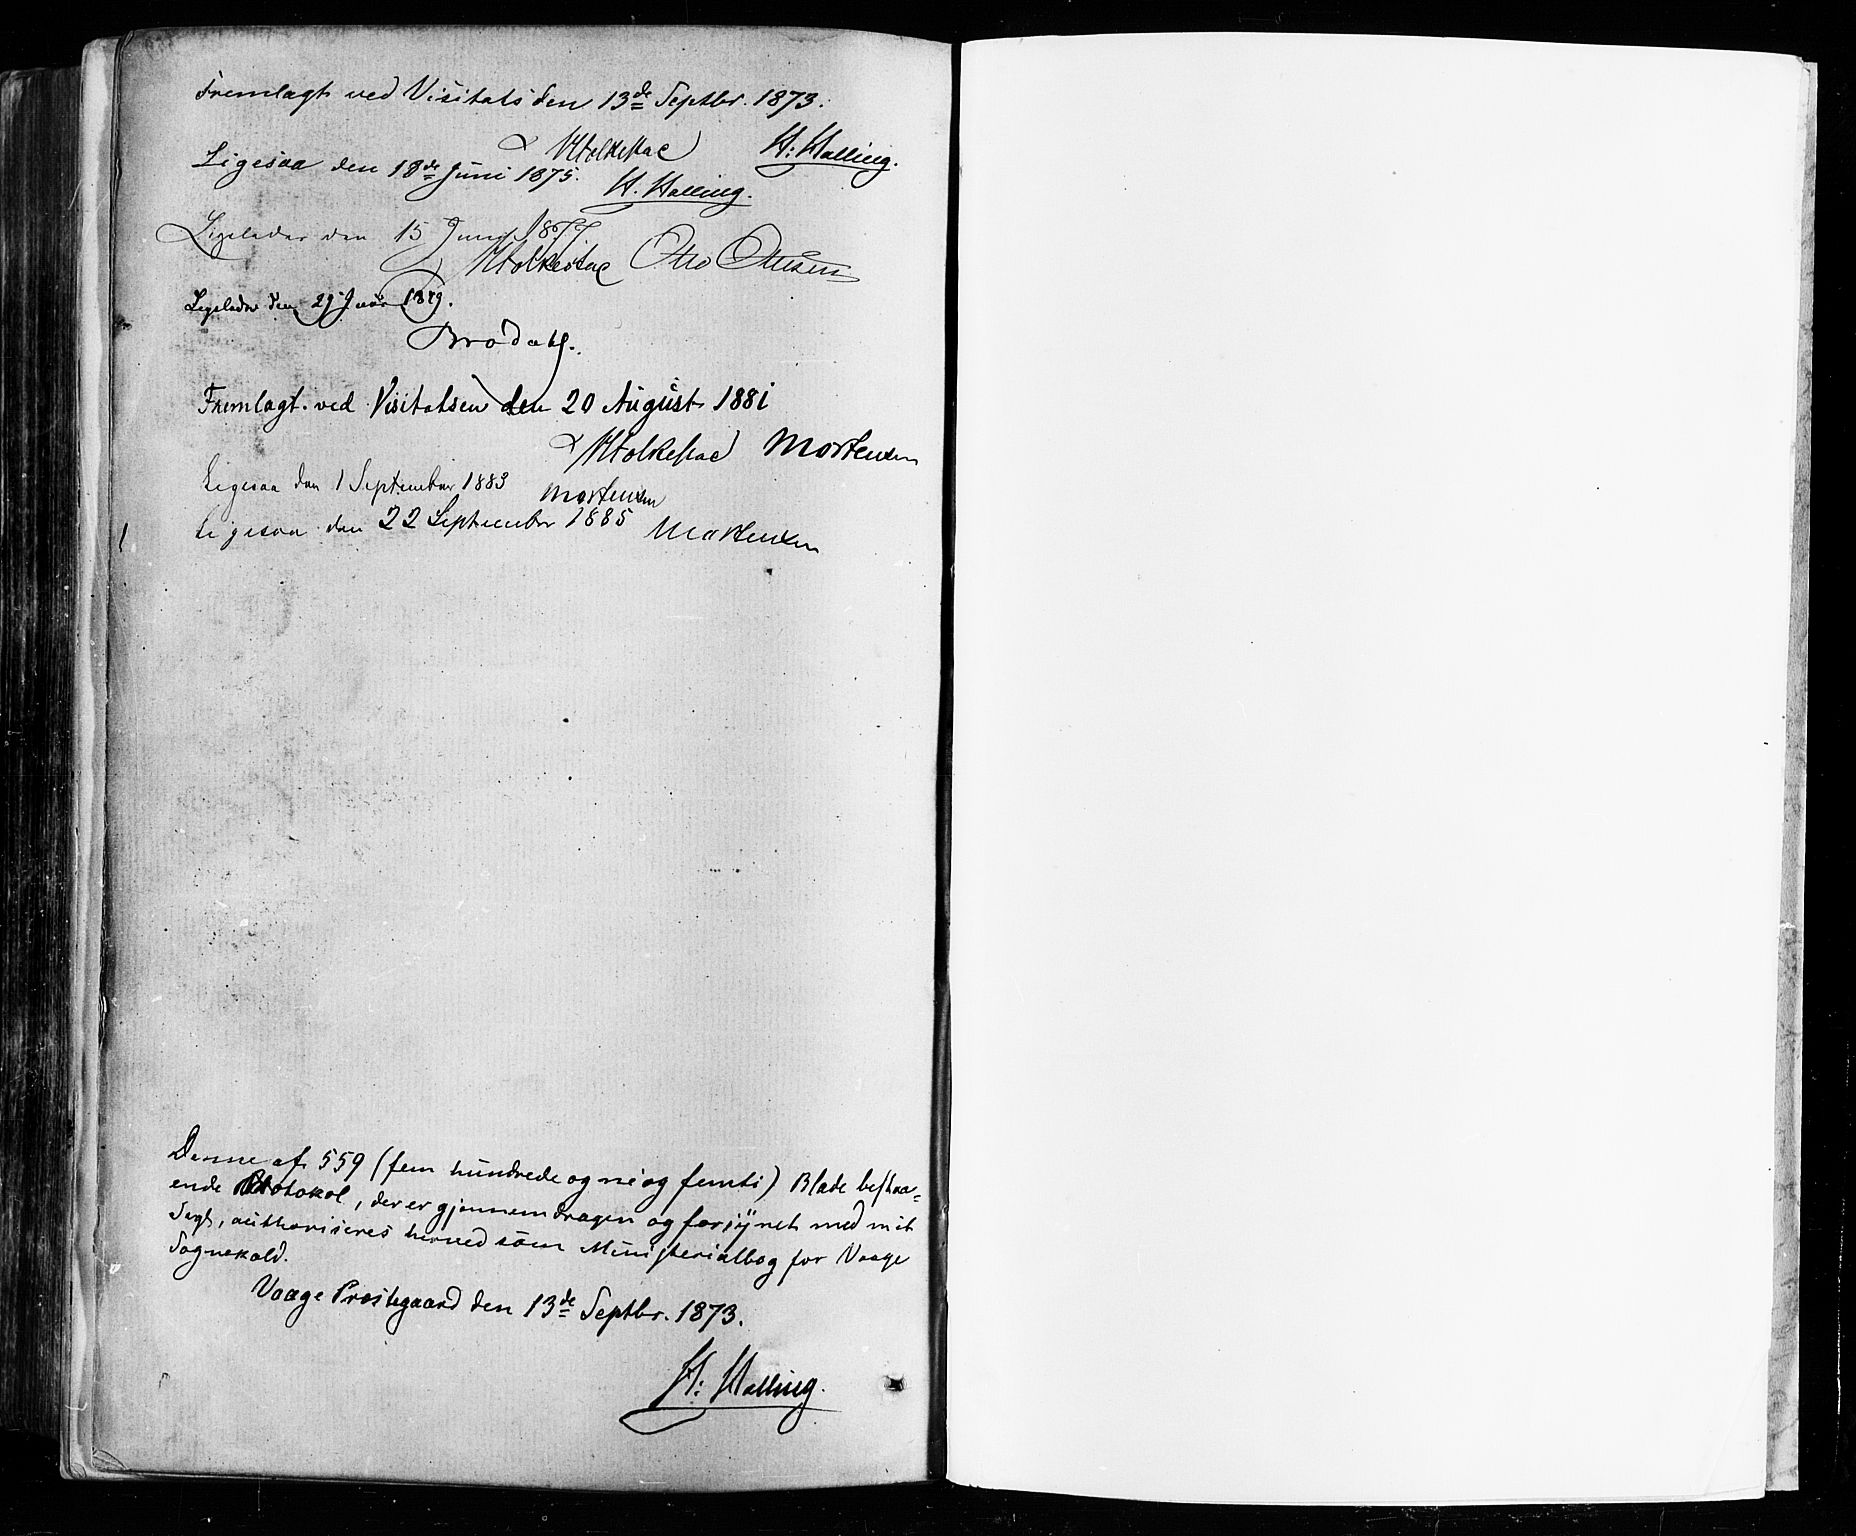 Fremlagt ved Visitats den 13de Septbr. 1873.
H: Halling.
Ligesaa den 18de Juni 1875. H. Halling.
Ligeledes den 15 Juni 1877
Otto Ottesen
Ligeledes den 29 Juni 1879.
Brodahl.
Fremlagt ved Visitatsen den 20 August 1881
Mortensen
Ligesaa den 1 September 1883 Mortensen
Ligesaa den 22 September 1885 Mortensen
Denne af 559 (fem hundrede og ni og femti) Blade bestaa=
ende Protokol, der er gjennemdragen og forsynet med mit
Segl, authoriseres herved som Ministerialbog for Vaage
Sognekald.
Vaage Præstegaard den 13de Septbr. 1873.
H: Halling.